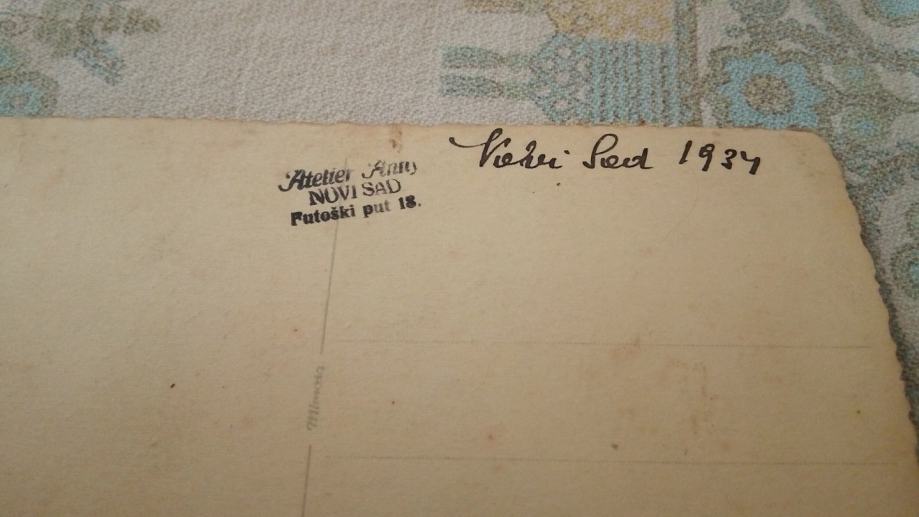 Novi Sad 1934
Atelier Anny
NOVI SAD
Futoški put 18.
Mimosa